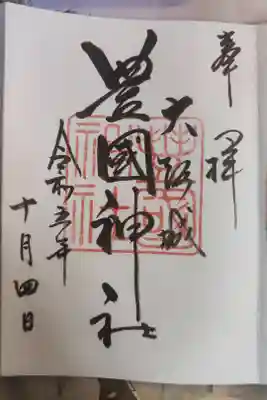 奉拝
大阪城
豊國神社
令和五年
十月四日